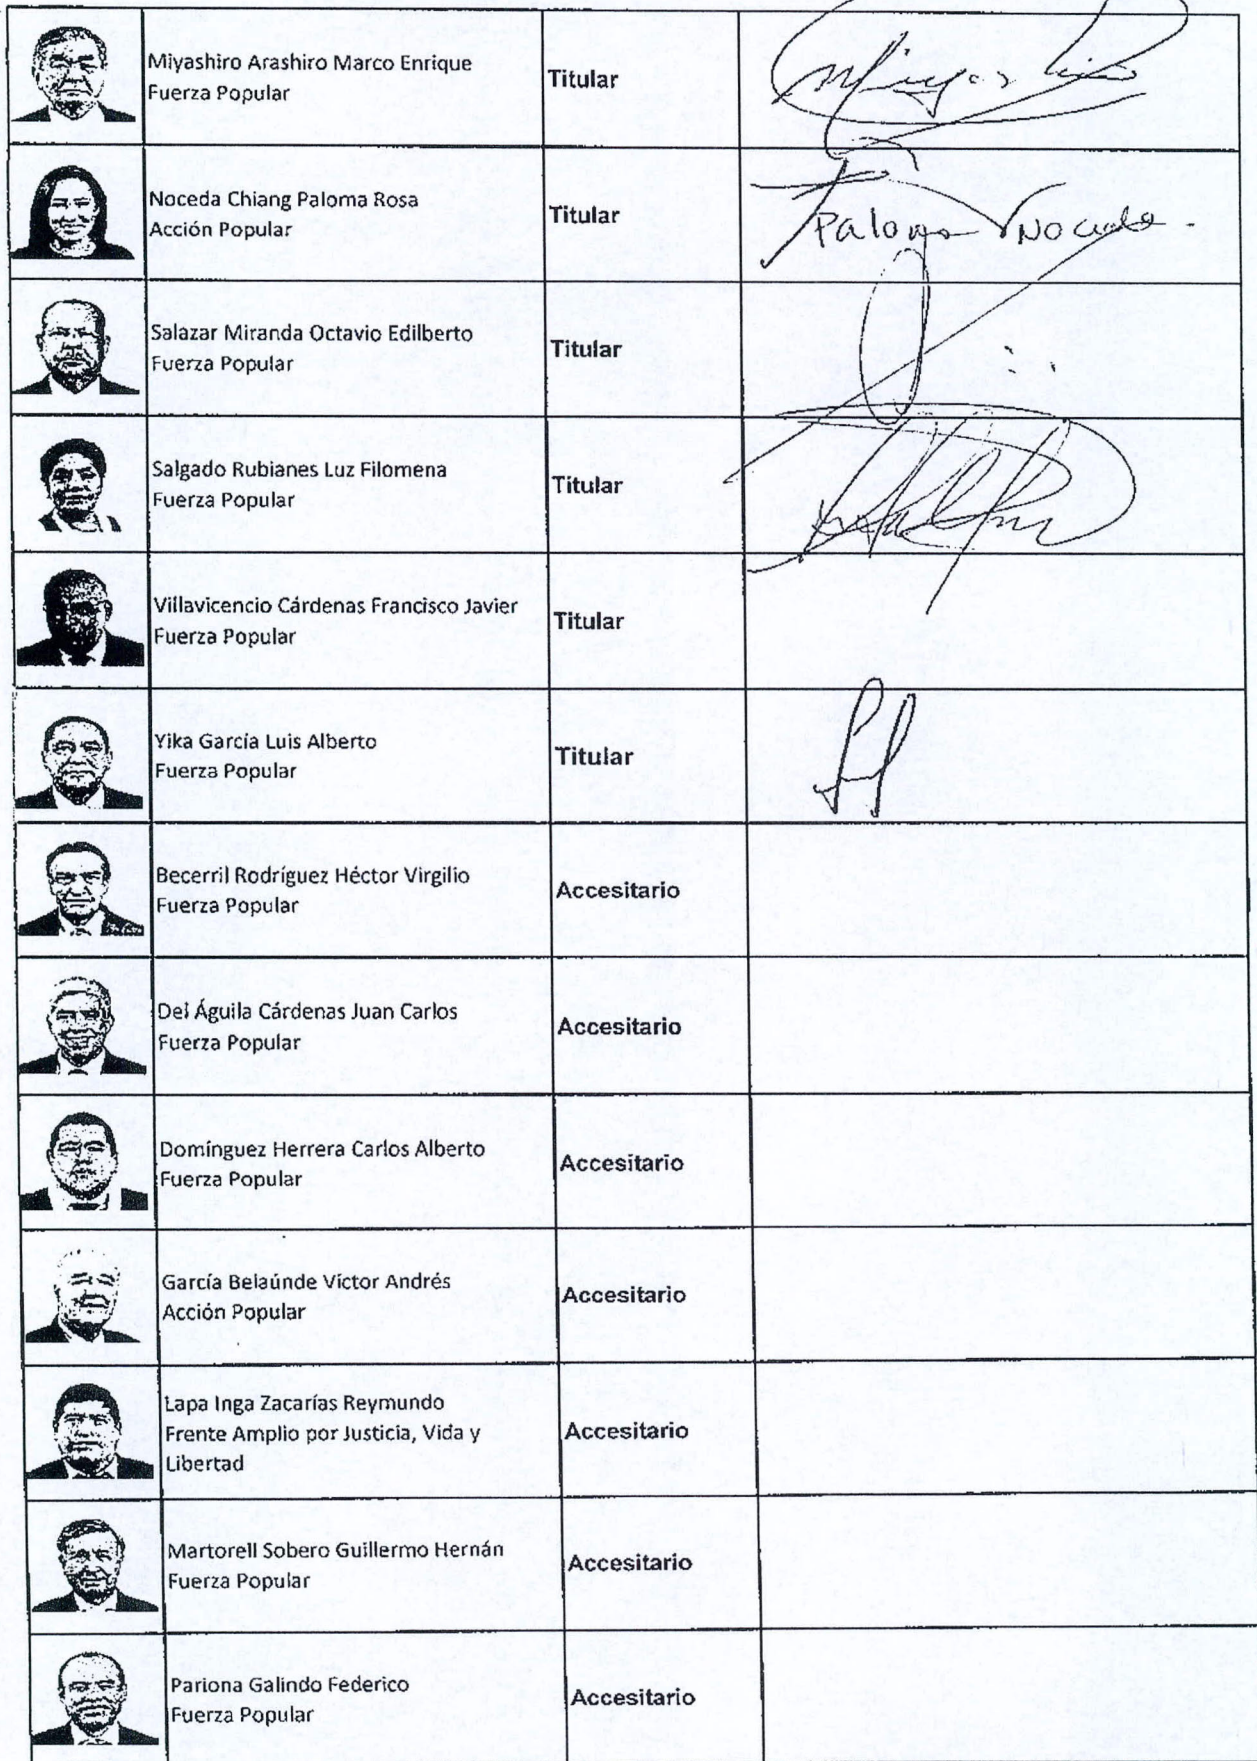 Miyashiro Arashiro Marco Enrique
Fuerza Popular
Titular
Noceda Chiang Paloma Rosa
Acción Popular
Titular
Paloma Noceda.
Salazar Miranda Octavio Edilberto
Fuerza Popular
Titular
Salgado Rubianes Luz Filomena
Fuerza Popular
Titular
Villavicencio Cárdenas Francisco Javier
Fuerza Popular
Titular
Yika García Luis Alberto
Fuerza Popular
Titular
Becerril Rodríguez Héctor Virgilio
Fuerza Popular
Accesitario
Del Águila Cárdenas Juan Carlos
Fuerza Popular
Accesitario
Domínguez Herrera Carlos Alberto
Fuerza Popular
Accesitario
García Belaúnde Víctor Andrés
Acción Popular
Accesitario
Lapa Inga Zacarías Reymundo
Frente Amplio por Justicia, Vida y
Libertad
Accesitario
Martorell Sobero Guillermo Hernán
Fuerza Popular
Accesitario
Pariona Galindo Federico
Fuerza Popular
Accesitario